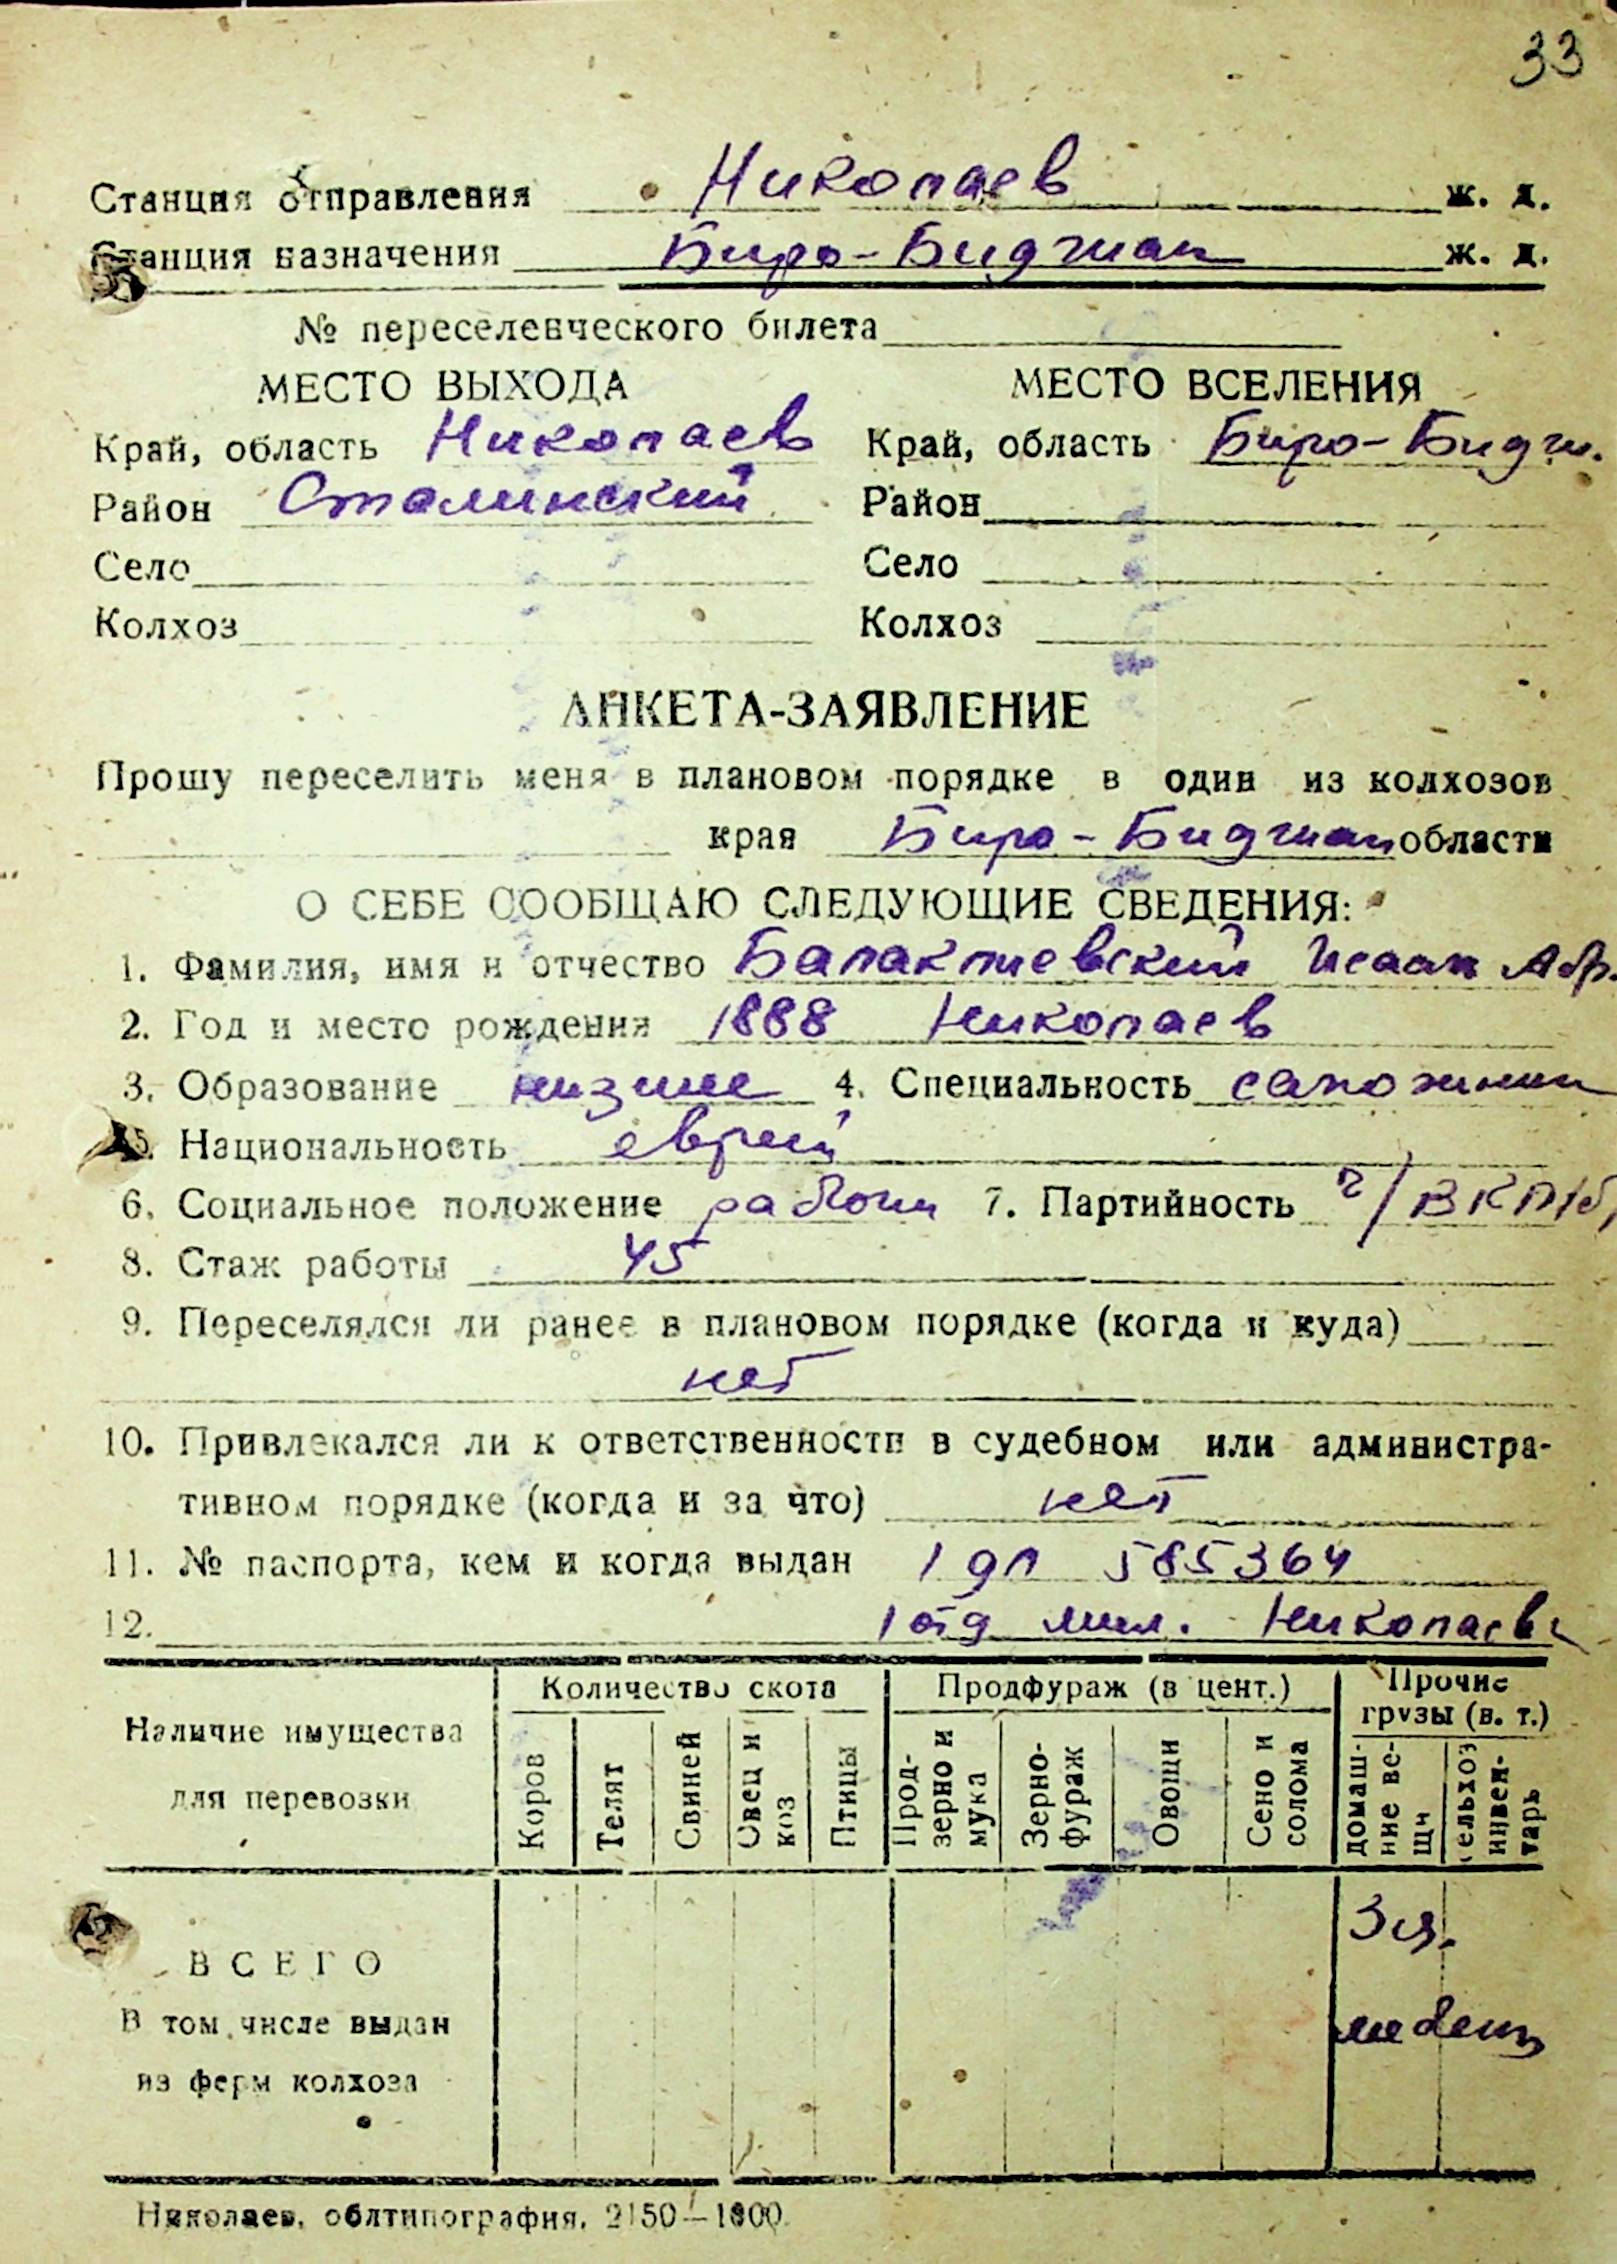 33
Станция отправления Николаев ж. д.
Станция назначения Биро-Биджан ж. д.
№ переселенческого билета
МЕСТО ВЫХОДА МЕСТО ВСЕЛЕНИЯ
Край, область Николаев Край, область Биро-Бидж.
Район Сталинский Район
Село Село
Колхоз Колхоз
АНКЕТА-ЗАЯВЛЕНИЕ
Прошу переселить меня в плановом порядке в один из колхозов
края Биро-Биджан области
О СЕБЕ СООБЩАЮ СЛЕДУЮЩИЕ СВЕДЕНИЯ:
1. Фамилия, имя и отчество Исаак Абр.
2. Год и место рождения 1888 Николаев
3. Образование низшее 4. Специальность сапожник
5. Национальность еврей
6. Социальное положение рабочий 7. Партийность ч/ВКП/б/
8. Стаж работы 45
9. Переселялся ли ранее в плановом порядке (когда и куда)
нет
10. Привлекался ли к ответственности в судебном или администра-
тивном порядке (когда и за что) нет
11. № паспорта, кем и когда выдан 585364
12. 1 отд мил. Николаева
Наличие имущества для перевозки Количество скота Продфураж (в цент.) Прочие грузы (в. т.)
Коров Телят Свиней Овец и коз Птицы Прод-зерно и мука Зерно-фураж Овощи Сено и солома домаш-ние ве-щи сельхоз инвен-тарь
ВСЕГО
В том числе выдан
из ферм колхоза
мебель
Николаев, облтипография, 2150—1800